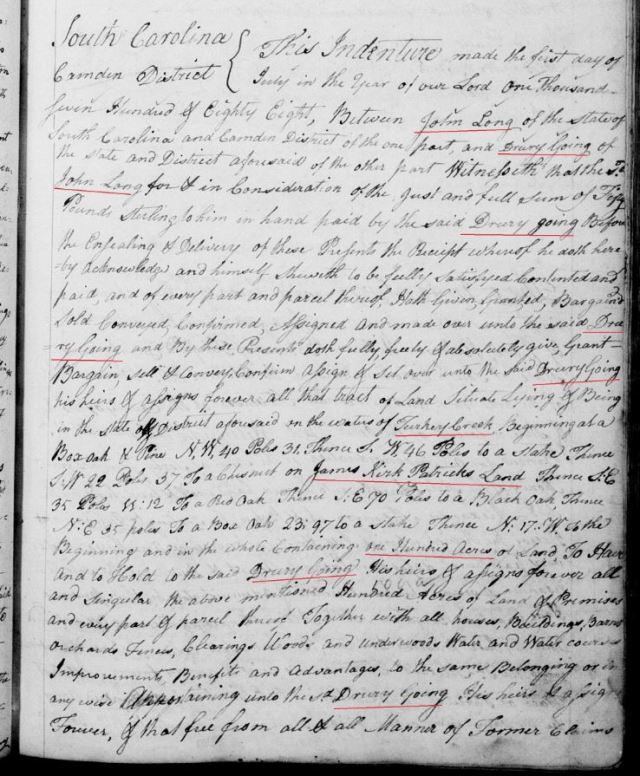 South Carolina
Camden District
This Indenture made the first day of
July in the Year of our Lord One Thousand
Seven Hundred & Eighty Eight, Between John Long of the State of
South Carolina and Camden District of the one part, and Drury Going of
the State and District aforesaid of the other part Witnesseth that the Sd
John Long for & in Consideration of the Just and full Sum of
Pounds Sterling to him in hand paid by the said Drury going Before
the Ensealing & Delivery of these Presents the Receipt whereof he doth here
-by Acknowledge and himself therewith to be fully Satisfyed Contented and
paid, and of every part and parcel thereof Hath Given, Granted, Bargaind
Sold Conveyed, Confirmed, Assigned and made over unto the said Dru
-ry Going and By these Presents doth fully freely & absolutely give, Grant
Bargain, sell & convery, Confirm assign & Set over unto the said Drury Going
his heirs & assigns forever all that tract of Land Situate Lying & Being
in the State & District aforesaid on the waters of Turkey Creek Beginning at a
Box Oak & Pine N. W. 40 Poles 31. Thence S. W 46 Poles to a Stake Thence
S. W 22 Poles 37 To a Chesnut on James Kirk Patricks Land Thence S: E
35 Poles 11:12 To a Red Oak Thence S: E 70 Poles to a Black Oak, Thence
N: E 35 poles To a Box Oak 23: 97 to a Stake Thence N: 17: W. to the
Beginning and in the whole Containing one Hundred Acres of Land, To Have
And to Hold to the said Drury Going His heirs & assigns forever all
and Singular the above mentioned Hundred Acres of Land & Premises
and every part & parcel thereof Together with all houses, Buildings, Barns
orchards Fences, Clearings Woods and underwoods Water and Water courses
Improvements, Benefits and Advantages, to the same Belonging or in
any wise Appertaining unto the sd Drury Going His heirs & assigns
Forever, & that free from all & all Manner of Former Claims